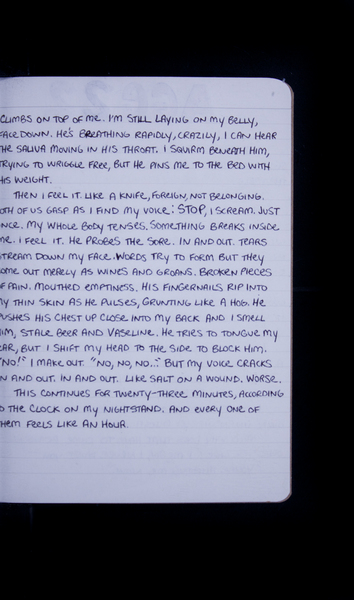 CLIMBS ON TOP OF ME. I'M STILL LAYING ON MY BELLY,
FACE DOWN. HE'S BREATHING RAPIDLY, CRAZILY, I CAN HEAR
THE SALIVA MOVING IN HIS THROAT. I SQUIRM BENEATH HIM,
TRYING TO WRIGGLE FREE, BUT HE PINS ME TO THE BED WITH
HIS WEIGHT.
THEN I FEEL IT. LIKE A KNIFE, FOREIGN, NOT BELONGING.
OTH OF US GASP AS I FIND MY VOICE: STOP, I SCREAM. JUST
NCE. MY WHOLE BODY TENSES. SOMETHING BREAKS INSIDE
ME. I FEEL IT. HE PROBES THE SORE. IN AND OUT. TEARS
STREAM DOWN MY FACE. WORDS TRY TO FORM BUT THEY
OME OUT MERELY AS WINES AND GROANS. BROKEN PIECES
F PAIN. MOUTHED EMPTINESS. HIS FINGERNAILS RIP INTO
MY THIN SKIN AS HE PULSES, GRUNTING LIKE A HOG. HE
PUSHES HIS CHEST UP CLOSE INTO MY BACK AND I SMELL
HIM, STALE BEER AND VASELINE. HE TRIES TO TONGUE MY
EAR, BUT I SHIFT MY HEAD TO THE SIDE TO BLOCK HIM.
"NO!" I MAKE OUT. "NO, NO, NO.." BUT MY VOICE CRACKS
N AND OUT. IN AND OUT. LIKE SALT ON A WOUND. WORSE.
THIS CONTINUES FOR TWENTY-THREE MINUTES, ACCORDING
O THE CLOCK ON MY NIGHTSTAND. AND EVERY ONE OF
HEM FEELS LIKE AN HOUR.